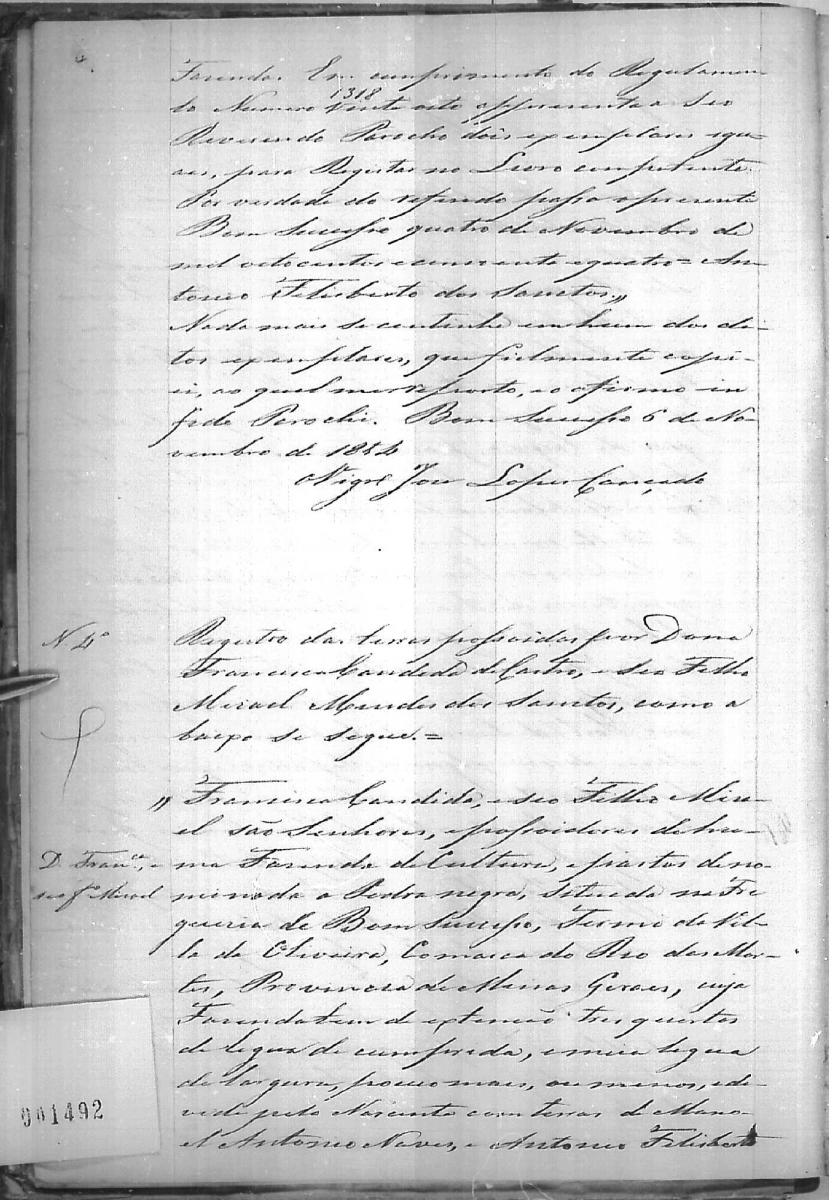 Fazenda. Em cumprimento do Regulamen-
to Numero 1318 vinte oito appresenta a Seo
Reverendo Parocho dois exemplares igu-
aes, para Registar no Livro competente.
Por verdade do referido passo o presente
Bom Sucesso quatro de Novembro de
mil oitocentos e cincoenta e quatro = An-
tonio Felisberto dos Sanctos.,,
Nada mais se continha em hum dos di-
tos exemplares, que fielmente copi-
ei, ao qual me reporto, e o afirmo in
fide Parochi. Bom Sucesso 6 de No-
vembro de 1854
O Vigrº Joze Lopes Cançado
N 4º
Registro das terras possuidas por Dona
Francisca Candida de Castro, e seo Filho
Misael Mendes dos Sanctos, como a
baixo se segue. =
,, Francisca Candida, e seo Filho Misa-
el são Senhores, e possuidores de hu-
D. Francª, e
seo Fº Misael
ma Fazenda de Cultura, e pastos deno-
minada a Pedra negra, Situada na Fre
guezia de Bom Sucesso, Termo da Vil-
la da Oliveira, Comarca do Rio das Mor-
tes, Provincia de Minas Geraes, cuja
Fazenda tem de extenção tres quartos
de legua de cumprida, e meia legua
de largura, pouco mais, ou menos, e de-
vide pelo Nascente com terras de Mano-
el Antonio Naves, e Antonio Felisberto
001492